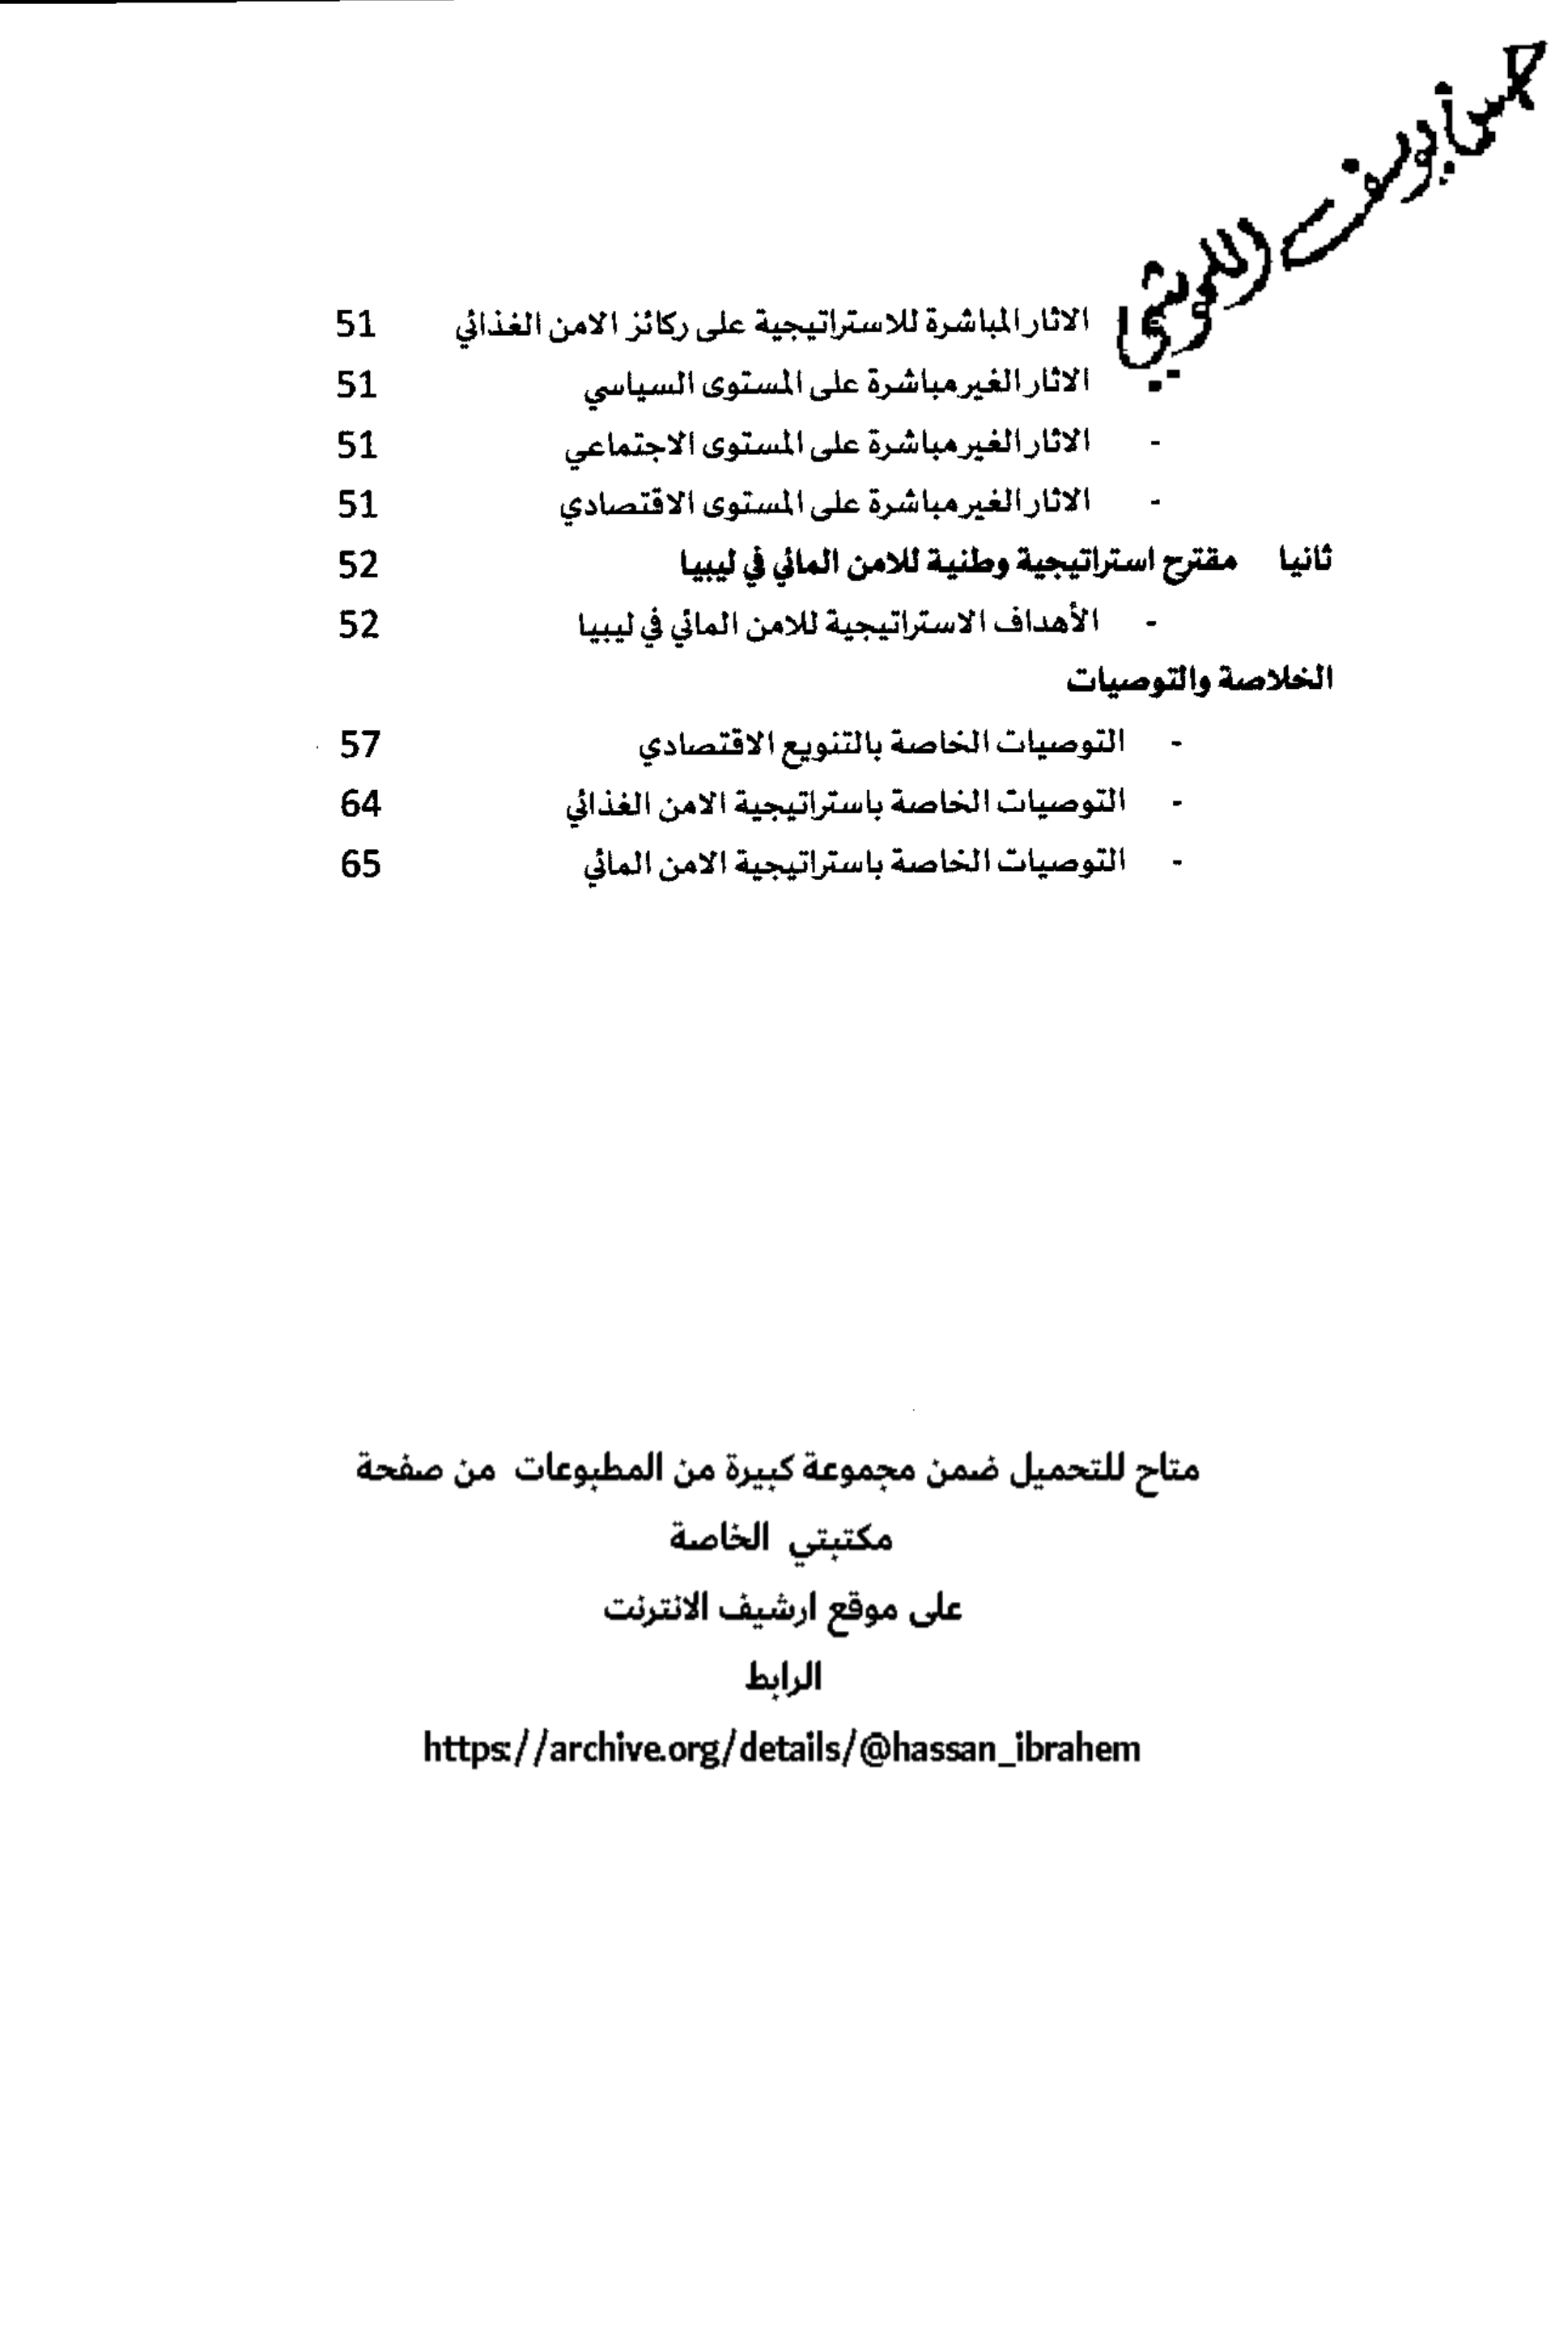 الاثار المباشرة للاستراتيجية على ركائز الامن الغذائي 51
الاثار الغير مباشرة على المستوى السياسي 51
- الاثار الغير مباشرة على المستوى الاجتماعي 51
- الاثار الغير مباشرة على المستوى الاقتصادي 51
ثانيا مقترح استراتيجية وطنية للامن المائي في ليبيا 52
- الأهداف الاستراتيجية للامن المائي في ليبيا 52
الخلاصة والتوصيات
- التوصيات الخاصة بالتنويع الاقتصادي 57
- التوصيات الخاصة باستراتيجية الامن الغذائي 64
- التوصيات الخاصة باستراتيجية الامن المائي 65
متاح للتحميل ضمن مجموعة كبيرة من المطبوعات من صفحة
مكتبتي الخاصة
على موقع ارشيف الانترنت
الرابط
https://archive.org/details/@hassan_ibrahem